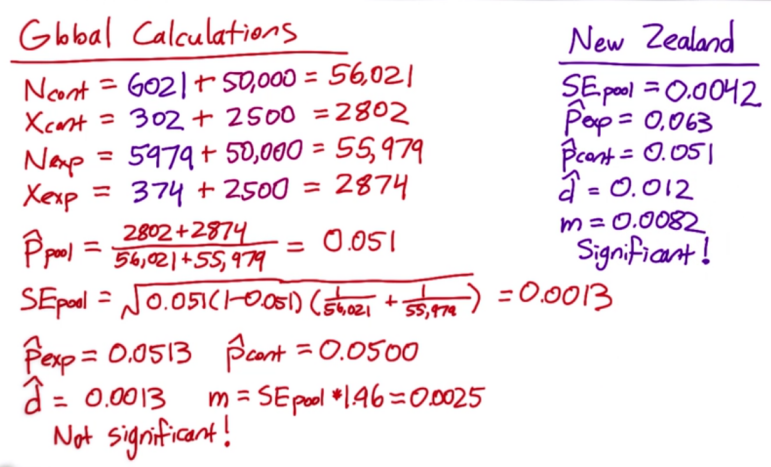 Global Calculations
N_cont = 6021 + 50,000 = 56,021
X_cont = 302 + 2500 = 2802
N_exp = 5979 + 50,000 = 55,979
X_exp = 374 + 2500 = 2874
p̂_pool = (2802 + 2874) / (56,021 + 55,979) = 0.051
SE_pool = √(0.051(1-0.051)(1/56,021 + 1/55,979)) = 0.0013
p̂_exp = 0.0513 p̂_cont = 0.0500
d̂ = 0.0013 m = SE_pool * 1.96 = 0.0025
Not significant!
New Zealand
SE_pool = 0.0042
p̂_exp = 0.063
p̂_cont = 0.051
d̂ = 0.012
m = 0.0082
Significant!